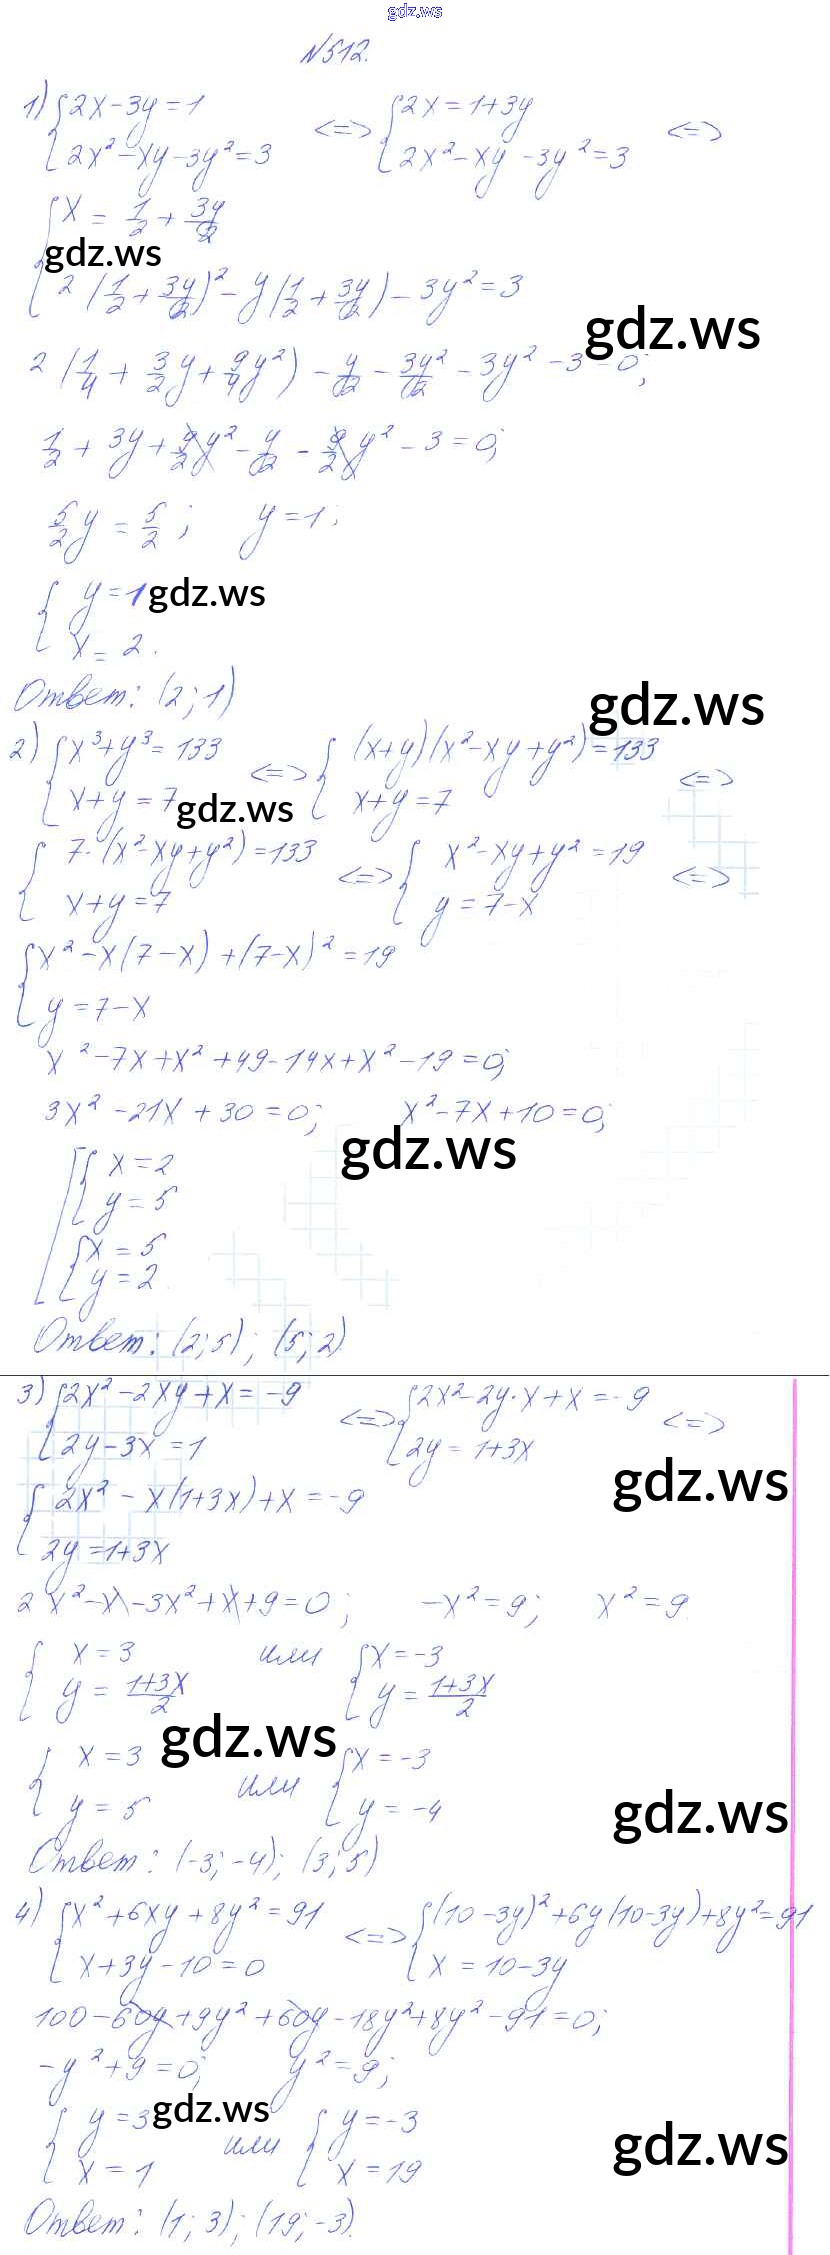 gdz.ws
N512.
1) { 2x-3y=1 <=> { 2x=1+3y <=>
2x²-xy-3y²=3 2x²-xy-3y²=3
{ x = 1/2 + 3y/2
gdz.ws
2(1/2+3y/2)²-y(1/2+3y/2)-3y²=3
gdz.ws
2(1/4+3/2y+9/4y²)-y/2-3y²/2-3y²-3=0;
1/2+3y+9/2y²-y/2-9/2y²-3=0;
5/2y=5/2; y=1;
{ y=1
gdz.ws
x=2.
Ответ: (2;1)
gdz.ws
2) { x³+y³=133 <=> { (x+y)(x²-xy+y²)=133 <=>
x+y=7 x+y=7
gdz.ws
{ 7·(x²-xy+y²)=133 <=> { x²-xy+y²=19 <=>
x+y=7 y=7-x
{ x²-x(7-x)+(7-x)²=19
y=7-x
x²-7x+x²+49-14x+x²-19=0;
3x²-21x+30=0; x²-7x+10=0;
gdz.ws
[ { x=2
y=5
{ x=5
y=2.
Ответ: (2;5); (5;2)
3) { 2x²-2xy+x=-9 <=> { 2x²-2y·x+x=-9 <=>
2y-3x=1 2y=1+3x
gdz.ws
{ 2x²-x(1+3x)+x=-9
2y=1+3x
2x²-x-3x²+x+9=0; -x²=9; x²=9
{ x=3 или { x=-3
y=(1+3x)/2 y=(1+3x)/2
gdz.ws
{ x=3 или { x=-3
y=5 y=-4
gdz.ws
Ответ: (-3;-4); (3;5)
4) { x²+6xy+8y²=91 <=> { (10-3y)²+6y(10-3y)+8y²=91
x+3y-10=0 x=10-3y
100-60y+9y²+60y-18y²+8y²-91=0;
-y²+9=0; y²=9;
{ y=3 или { y=-3
gdz.ws
x=1 x=19
gdz.ws
Ответ: (1;3); (19;-3).